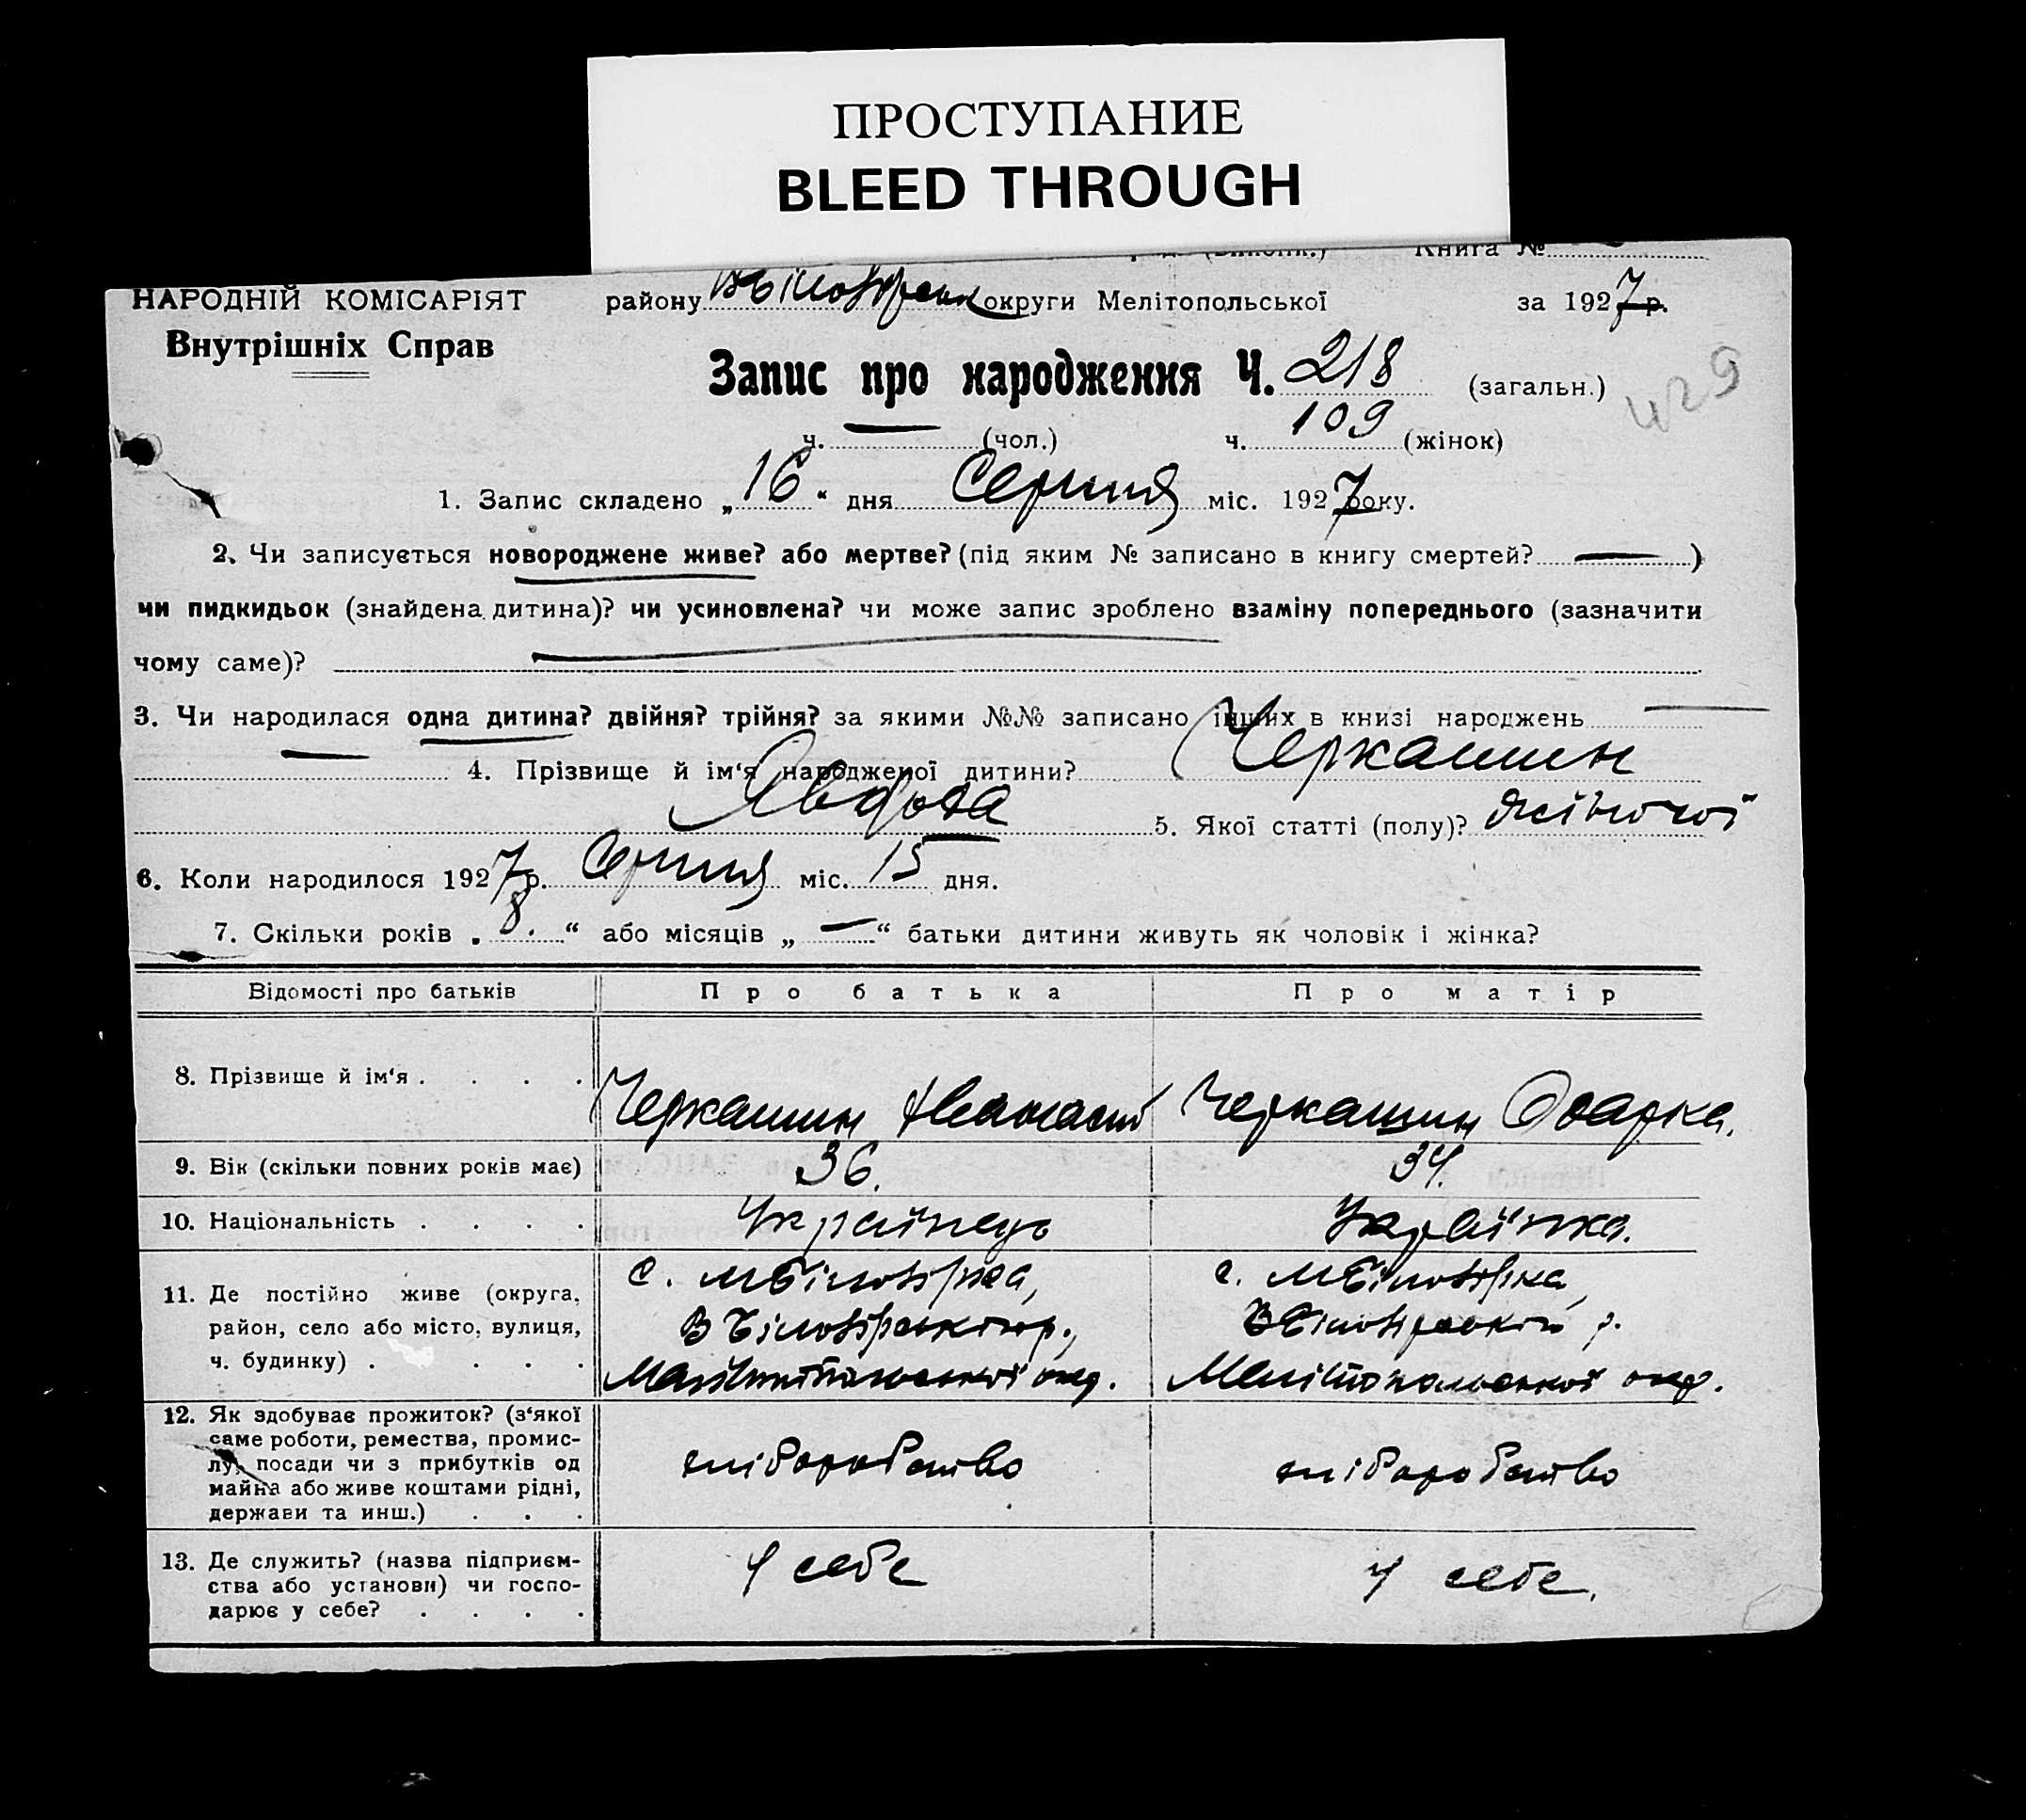 ПРОСТУПАНИЕ
BLEED THROUGH
Книга №
НАРОДНІЙ КОМІСАРІЯТ
Внутрішніх Справ
району ВБілозірськ округи Мелітопольської за 1927 р.
Запис про народження Ч. 218 (загальн.)
429
ч. — (чол.) ч. 109 (жінок)
1. Запис складено „16“ дня Серпня міс. 1927 року.
2. Чи записується новороджене живе? або мертве? (під яким № записано в книгу смертей? — )
чи пидкидьок (знайдена дитина)? чи усиновлена? чи може запис зроблено взаміну попереднього (зазначити
чому саме)?
3. Чи народилася одна дитина? двійня? трійня? за якими №№ записано інших в книзі народжень —
— 4. Прізвище й ім‘я народженої дитини? Черкашин
Явдоха 5. Якої статті (полу)? жіночої
6. Коли народилося 1927 р. Серпня міс. 15 дня.
7. Скільки років „8.“ або місяців „—“ батьки дитини живуть як чоловік і жінка?
Відомості про батьків Про батька Про матір
8. Прізвище й ім‘я . . . . Черкашин Панасий Черкашин Одарка.
9. Вік (скільки повних років має) 36. 34.
10. Національність . . . . Українець Українка.
11. Де постійно живе (округа,
район, село або місто, вулиця,
ч. будинку) . . . .
с. МБілозірка,
ВБілозірського р.,
Мелітопольської окр.
с. МБілозірка,
ВБілозірський р.
Мелітопольської окр.
12. Як здобуває прожиток? (з‘якої
саме роботи, ремества, промис-
лу, посади чи з прибутків од
майна або живе коштами рідні,
держави та инш.) . . .
хліборобство хліборобство
13. Де служить? (назва підприєм-
ства або установи) чи госпо-
дарює у себе? . . . .
У себе У себе.